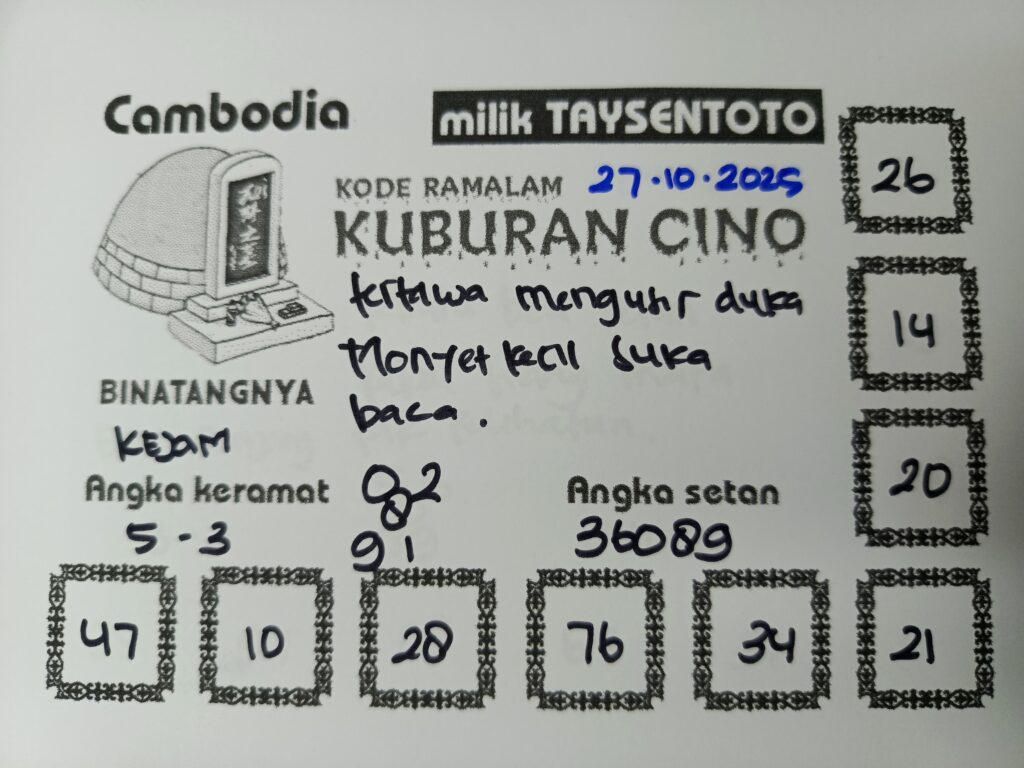 Cambodia
milik TAYSENTOTO
KODE RAMALAM 27.10.2025
KUBURAN CINO
tertawa mengusir duka
Monyet kecil suka
baca.
BINATANGNYA
KEJAM
Angka keramat
5 - 3
0 2
8
9 1
Angka setan
36089
26
14
20
47 10 28 76 34 21